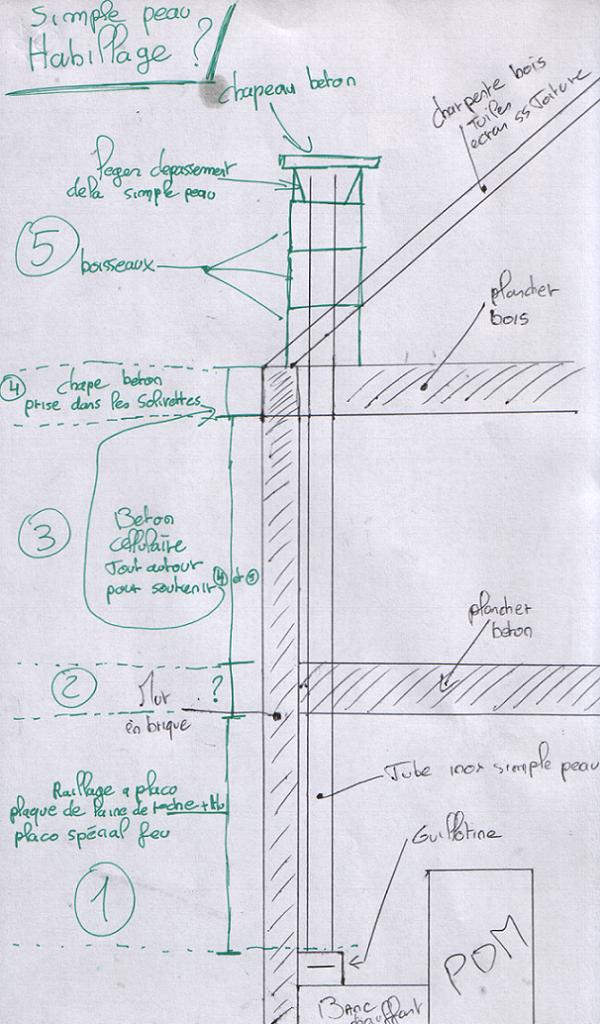 Simple peau
Habillage ?
chapeau beton
charpente bois
Tuiles
ecran ss Toiture
leger depassement
de la simple peau
5
boisseaux
plancher
bois
4
chape beton
prise dans les solivettes
3
Beton
Cellulaire
Tout autour
pour soutenir 4 et 5
plancher
beton
2
Mur
?
en brique
Tube inox simple peau
Raillage a placo
plaque de laine de roche +
placo spécial feu
Guillotine
1
POM
Banc
chauffant